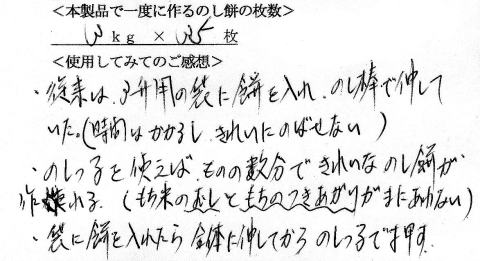 <本製品で一度に作るのし餅の枚数>
3 kg × 35 枚
<使用してみてのご感想>
・従来は、3升用の袋に餅を入れ、のし棒で伸して
いた。(時間はかかるし、きれいにのばせない )
・のしっ子を使えば、ものの数分できれいなのし餅が
作れる。(もち米のむしともちのつきあがりがまにあわない)
・袋に餅を入れたら全体に伸してからのしっ子で押す。